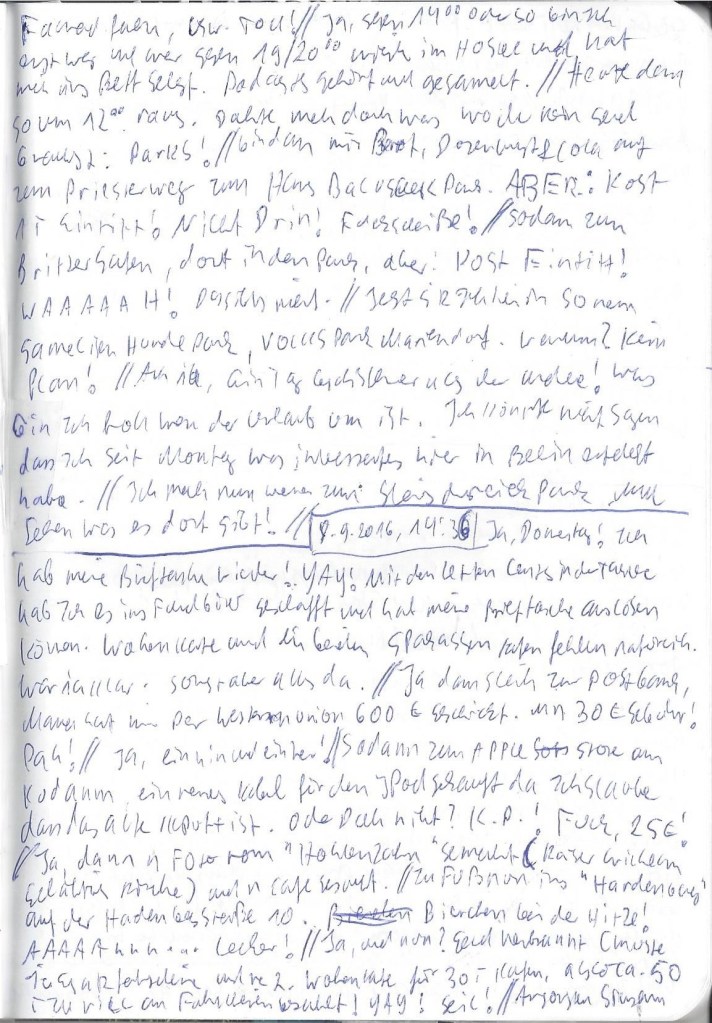 usw. Toll! // Ja, gegen 14⁰⁰ oder so bin ich
weg und war gegen 19/20⁰⁰ wieder im Hostel und hab
mich ins Bett gelegt. gehört und gegammelt. // Heute dann
so um 12⁰⁰ raus. Dachte mich doch was wo du kein Geld
brauchst: Parks! // bin dann mit Brot, Dosenwurst & Cola auf
zum Priesterweg zum Hans Park. ABER: Kost
1 € Eintritt! Nicht Drin! // Sodann zum
Britzer Garten, dort in den Park, aber! Kost Eintritt!
WAAAAAH! Das nicht. // Jetzt sitz ich hier in so nem
gammeligen Hundepark, Volkspark Mariendorf. Warum? Kein
Plan! // Ach ne, ein Tag der andere! Was
bin ich froh wenn der Urlaub um ist. Ich könnte nicht sagen
dass ich seit Montag was interessantes hier in Berlin erlebt
habe. // Ich mach nun weiter zum Gleisdreieck Park und
sehen was es dort gibt! // 8.9.2016, 14:36 Ja, Donnerstag! Ich
hab meine Brieftasche wieder! YAY! Mit den letzten Cents in der Tasche
hab ich es ins Fundbüro geschafft und hab meine Brieftasche auslösen
können. Wochenkarte und die beiden Sparkassen Karten fehlen natürlich.
War ja klar. Sonst aber alles da. // Ja dann gleich zur Postbank,
Mama hat mir per Western Union 600 € geschickt. Mit 30 € Gebühr!
Pah! // Ja, ein hin und einher! // Sodann zum APPLE Store am
Kudamm, ein neues Kabel für den IPod gekauft da ich glaube
dass das alte kaputt ist. Oder Doch nicht? K.P.! Fuck, 25€!
// Ja, dann n Foto vom "Hohlenzahn" gemacht (Kaiser Wilhelm
Gedächtnis Kirche) und n Cafe gekauft. // Zu Fuß nun ins "Hardenberg"
auf der Hardenbergstraße 10. Bierchen bei der Hitze!
AAAAAhhh... Lecker! // Ja, und nun? Geld verbrannt (musste
Zusatzfahrscheine und ne 2. Wochenkarte für 30 € kaufen, also ca. 50
€ zu viel an Fahrscheinen bezahlt! YAY! Geil! //